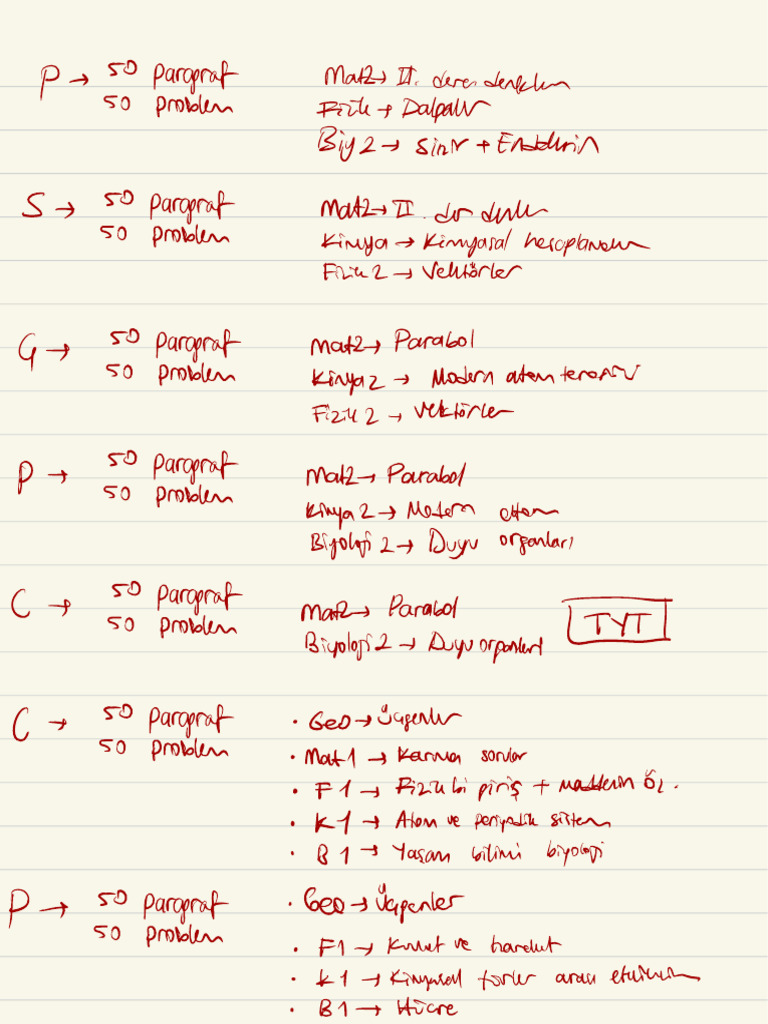 P → 50 Paragraf
50 problem
Mat2 → II. derec denklem
Fizik → Dalgalar
Biy 2 → Sinir + Endokrin
S → 50 Paragraf
50 problem
Mat2 → II. der denk
Kimya → Kimyasal hesaplamalar
Fizik 2 → Vektörler
Ç → 50 Paragraf
50 problem
Mat2 → Parabol
Kimya 2 → Modern atom teorisi
Fizik 2 → Vektörler
P → 50 Paragraf
50 problem
Mat2 → Parabol
Kimya 2 → Modern atom
Biyoloji 2 → Duyu organları
C → 50 Paragraf
50 problem
Mat2 → Parabol
Biyoloji 2 → Duyu organları
TYT
C → 50 Paragraf
50 problem
• Geo → Üçgenler
• Mat 1 → Karma sorular
• F 1 → Fizik bi giriş + maddenin Öz.
• K1 → Atom ve periyodik sistem
• B 1 → Yaşam bilimi biyoloji
P → 50 Paragraf
50 problem
• Geo → Üçgenler
• F1 → Kuvvet ve hareket
• K1 → Kimyasal türler arası etkileşim
• B1 → Hücre